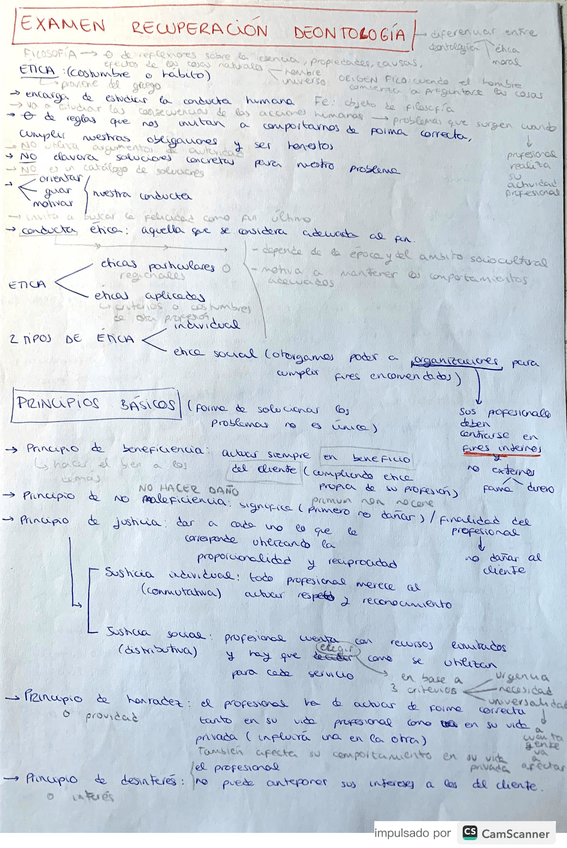 EXAMEN RECUPERACIÓN DEONTOLOGÍA → diferenciar entre
deontología ética
moral
FILOSOFÍA → θ de reflexiones sobre la esencia, propiedades, causas,
efectos de las cosas naturales hombre
universo
ORIGEN FILO: cuando el hombre
comienza a preguntarse las cosas
ETICA: (costumbre o habito)
proviene del griego
→ encarga de estudiar la conducta humana FE: objeto de filosofía
→ va a estudiar las consecuencias de las acciones humanas → problemas que surgen cuando
→ θ de reglas que nos invitan a comportarnos de forma correcta,
cumplir nuestras obligaciones y ser honestos
profesional
realiza
su
actividad
profesional
→ NO utiliza argumentos de autoridad
→ NO elavora soluciones concretas para nuestro problema
→ NO es un catálogo de soluciones
→ orientar
guiar
motivar
nuestra conducta
→ invita a buscar la felicidad como fin último
→ conducta ética: aquella que se considera adecuada al fin.
- depende de la época y del ambito sociocultural
- motiva a mantener los comportamientos
adecuados
ETICA
eticas particulares o
regionales
éticas aplicadas
↳ criterios o costumbres
de otra profesión
2 TIPOS DE ÉTICA
individual
etica social (otorgamos poder a organizaciones para
cumplir fines encomendados)
PRINCIPIOS BÁSICOS (forma de solucionar los
problemas no es única)
sus profesionales
deben
centrarse en
fines internos
y
no externos
fama dinero
→ Principio de beneficiencia: actuar siempre en beneficio
del cliente (cumpliendo etica
propia de su profesión)
↳ hacer el bien a los
demás
NO HACER DAÑO
primun non nocere
→ Principio de no maleficiencia: significa (primero no dañar) / finalidad del
profesional
↓
no dañar al
cliente
→ Principio de justicia: dar a cada uno lo que le
corresponde utilizando la
proporcionalidad y reciprocidad
Justicia individual: todo profesional merece al
(conmutativa) actuar respeto y reconocimiento
Justicia social: profesional cuenta con recursos limitados
(distributiva) y hay que elegir como se utilizan
para cada servicio
en base a
3 criterios
urgencia
necesidad
universalidad
↓
a
cuanta
gente
va a
afectar
→ Principio de honradez: el profesional ha de actuar de forma correcta
o providad
tanto en su vida profesional como en su vida
privada (influirá una en la otra)
También afecta su comportamiento en su vida
privada
→ Principio de desinterés: el profesional
no puede anteponer sus intereses a los del cliente.
o interés
impulsado por CS CamScanner